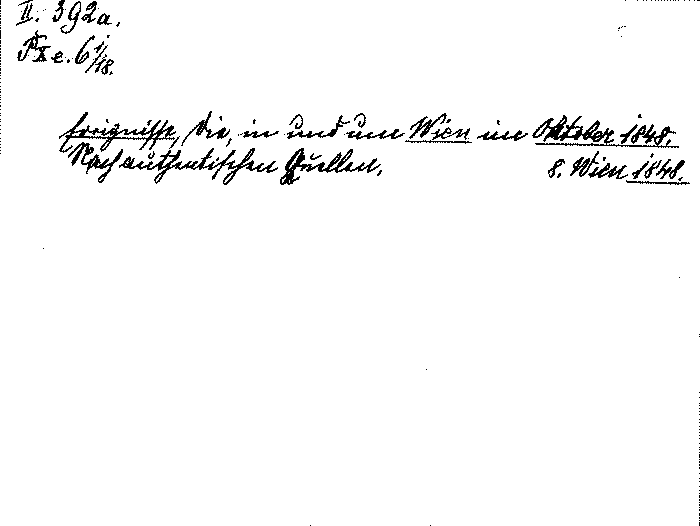 II. 392a.
e. 6 1/18.
Ereignisse, Die, in und um Wien im Oktober 1848.
Nach authentischen Quellen. 8. Wien 1848.